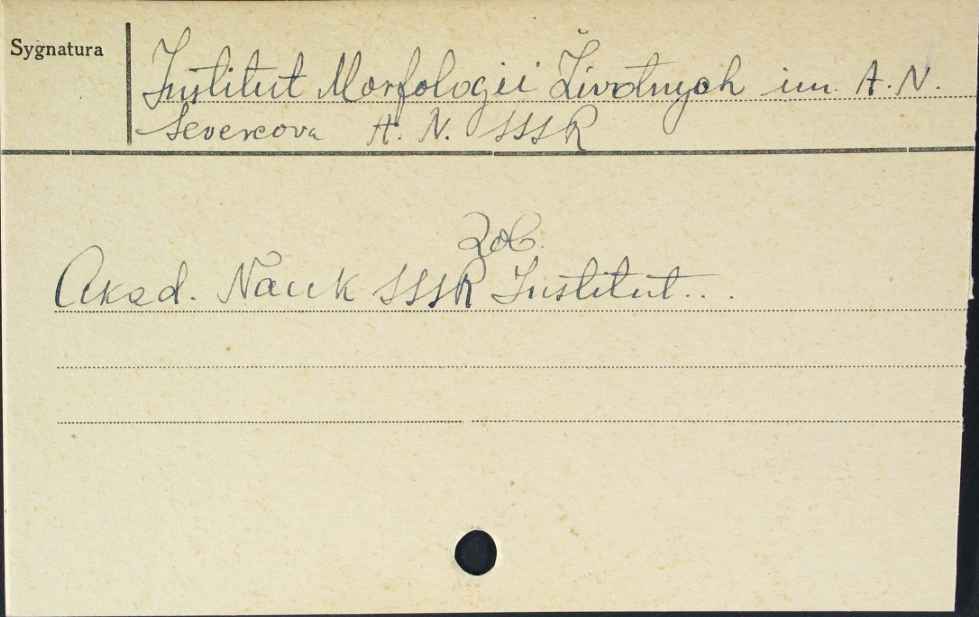 Sygnatura
Institut Morfologii Životnych im. A. N.
Severcova A. N. SSSR
Zob.
Akad. Nauk SSSR Institut...